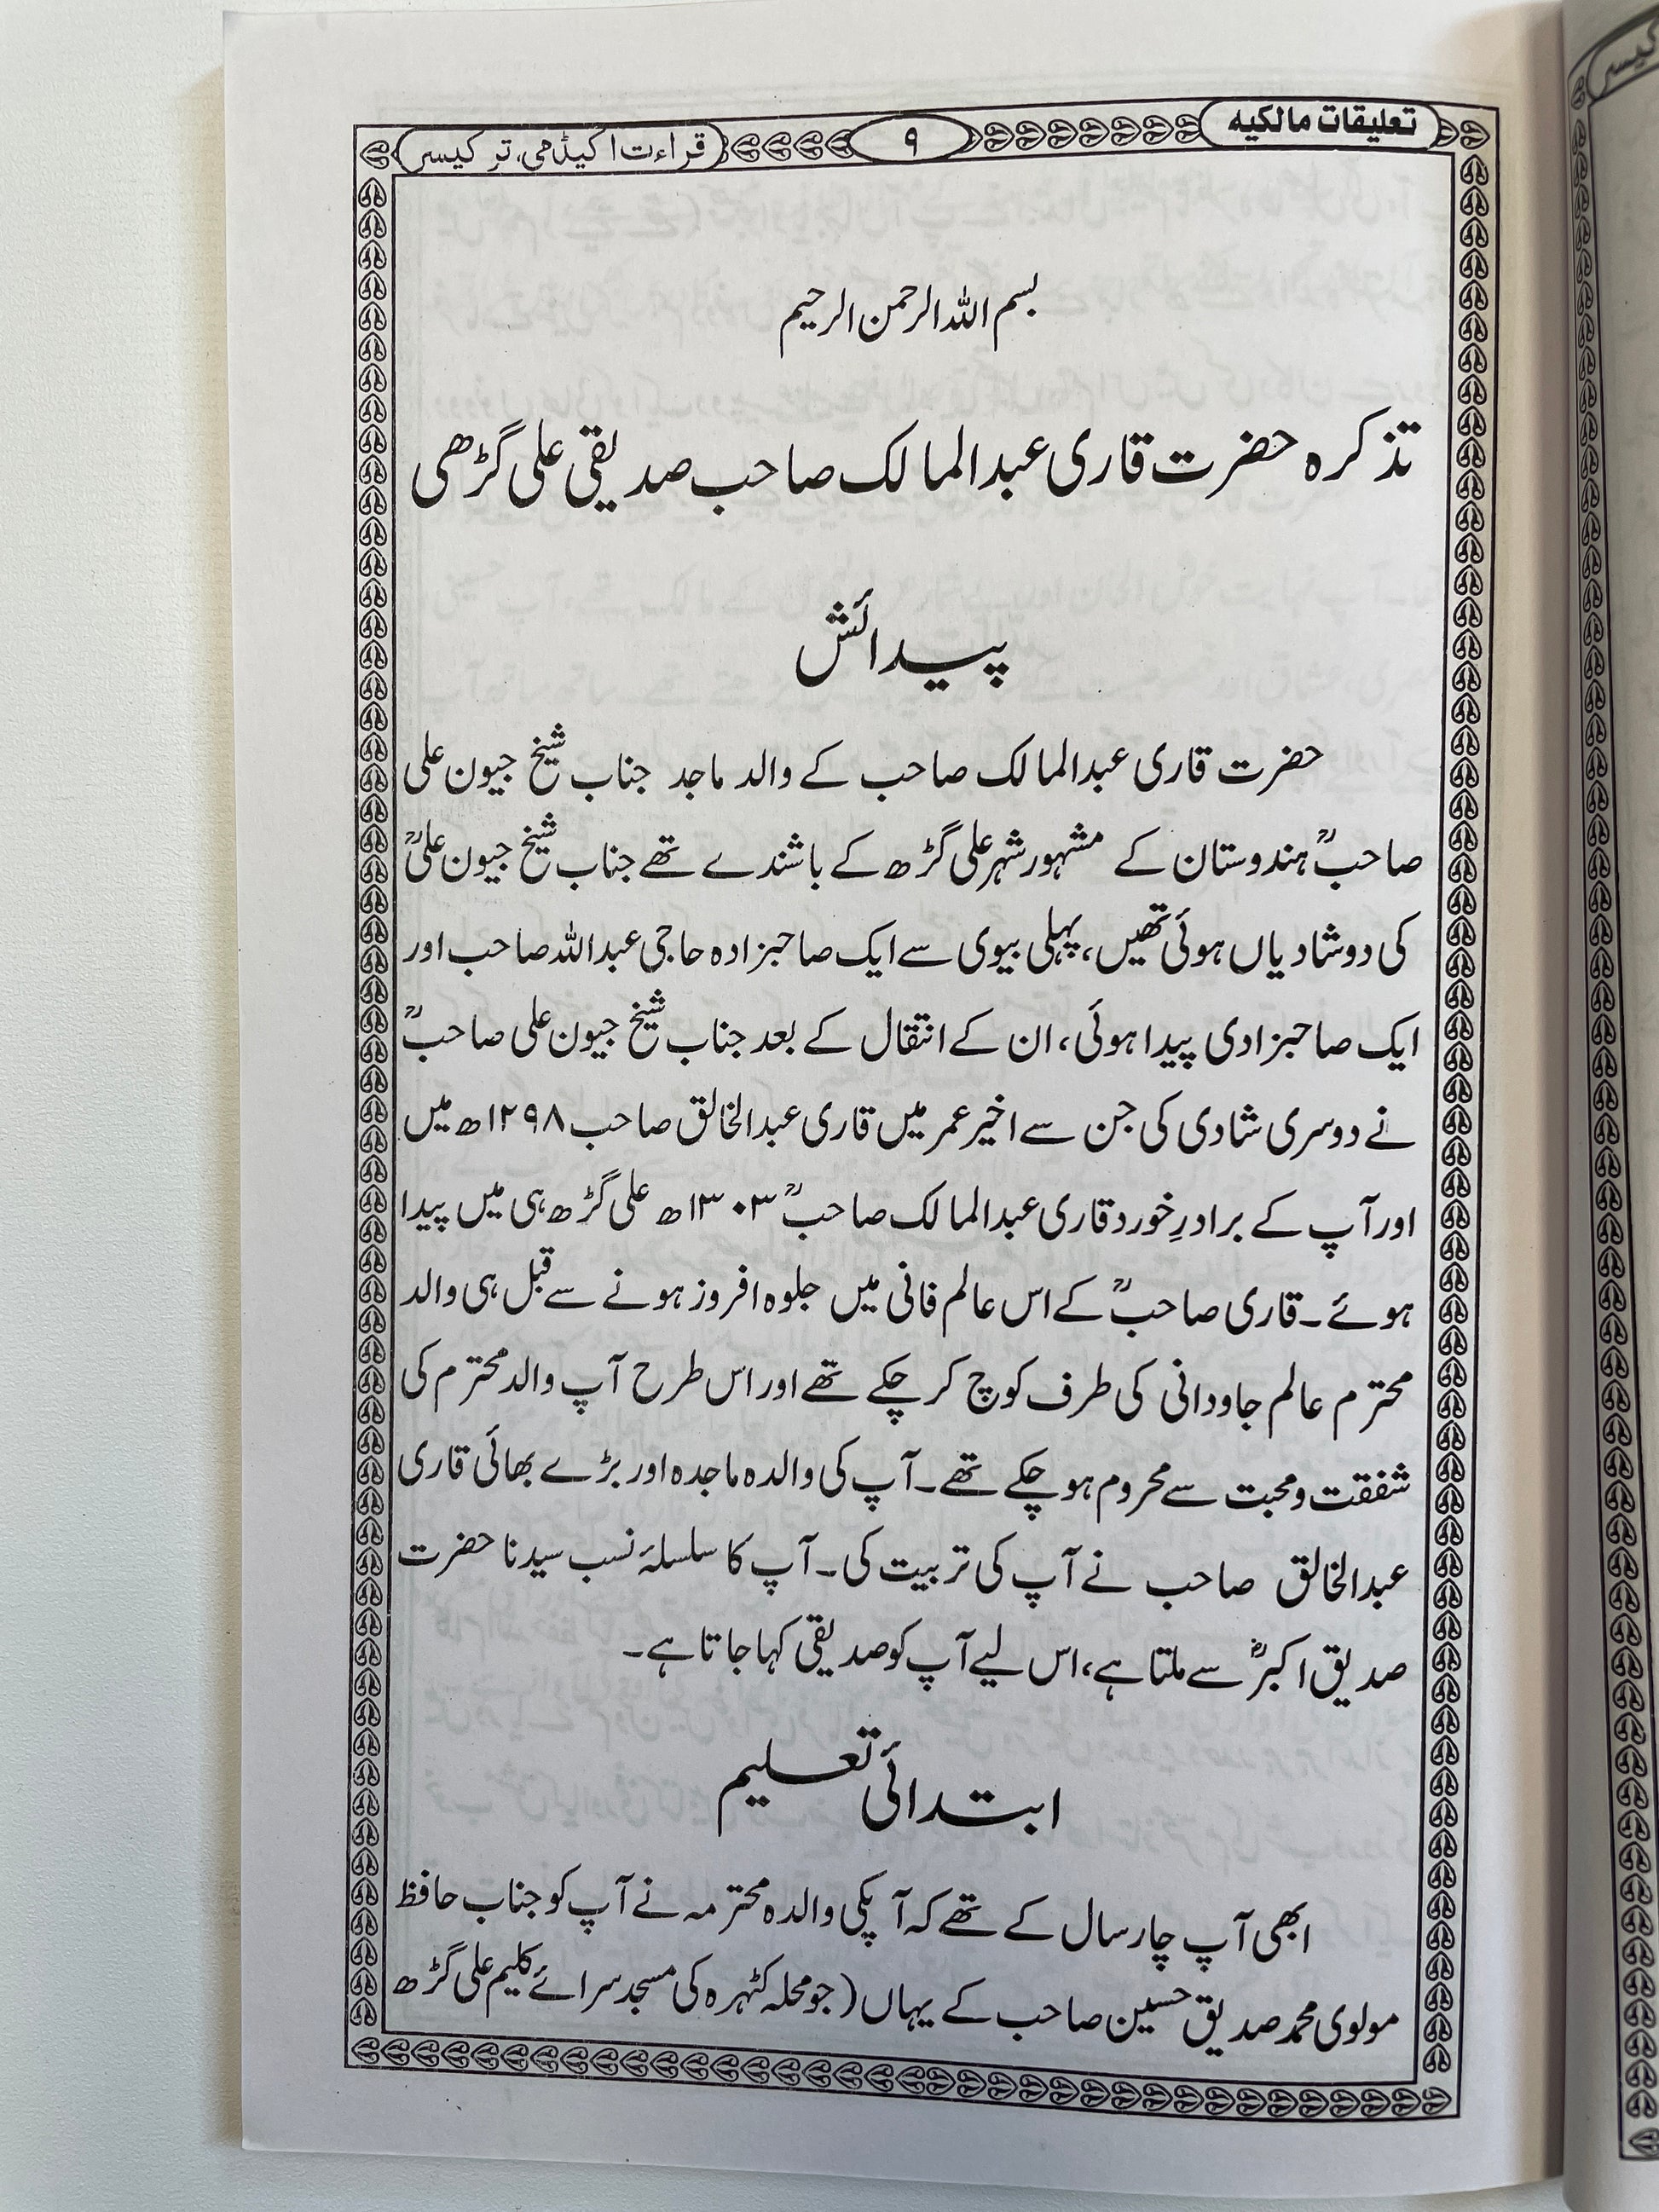 تعلیقات مالکیه
۹
قراءت اکیڈمی، ترکیسر
بسم اللہ الرحمن الرحیم
تذکرہ حضرت قاری عبدالمالک صاحب صدیقی علی گڑھی
پیدائش
حضرت قاری عبدالمالک صاحب کے والد ماجد جناب شیخ جیون علی
صاحبؒ ہندوستان کے مشہور شہر علی گڑھ کے باشندے تھے جناب شیخ جیون علیؒ
کی دو شادیاں ہوئی تھیں، پہلی بیوی سے ایک صاحبزادہ حاجی عبداللہ صاحب اور
ایک صاحبزادی پیدا ہوئی، ان کے انتقال کے بعد جناب شیخ جیون علی صاحبؒ
نے دوسری شادی کی جن سے اخیر عمر میں قاری عبدالخالق صاحب ۱۲۹۸ھ میں
اور آپ کے برادرِ خورد قاری عبدالمالک صاحبؒ ۱۳۰۳ھ علی گڑھ ہی میں پیدا
ہوئے۔ قاری صاحبؒ کے اس عالم فانی میں جلوہ افروز ہونے سے قبل ہی والد
محترم عالم جاودانی کی طرف کوچ کر چکے تھے اور اس طرح آپ والد محترم کی
شفقت و محبت سے محروم ہو چکے تھے۔ آپ کی والدہ ماجدہ اور بڑے بھائی قاری
عبدالخالق صاحب نے آپ کی تربیت کی۔ آپ کا سلسلۂ نسب سیدنا حضرت
صدیق اکبرؓ سے ملتا ہے، اس لیے آپ کو صدیقی کہا جاتا ہے۔
ابتدائی تعلیم
ابھی آپ چار سال کے تھے کہ آپکی والدہ محترمہ نے آپ کو جناب حافظ
مولوی محمد صدیق حسین صاحب کے یہاں (جو محلہ کٹہرہ کی مسجد سرائے کلیم علی گڑھ